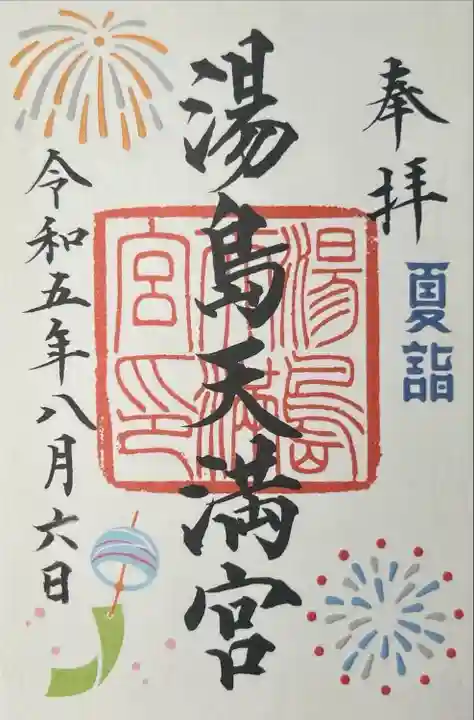 奉拝
夏詣
湯島天満宮
湯島
天満
宮印
令和五年八月六日